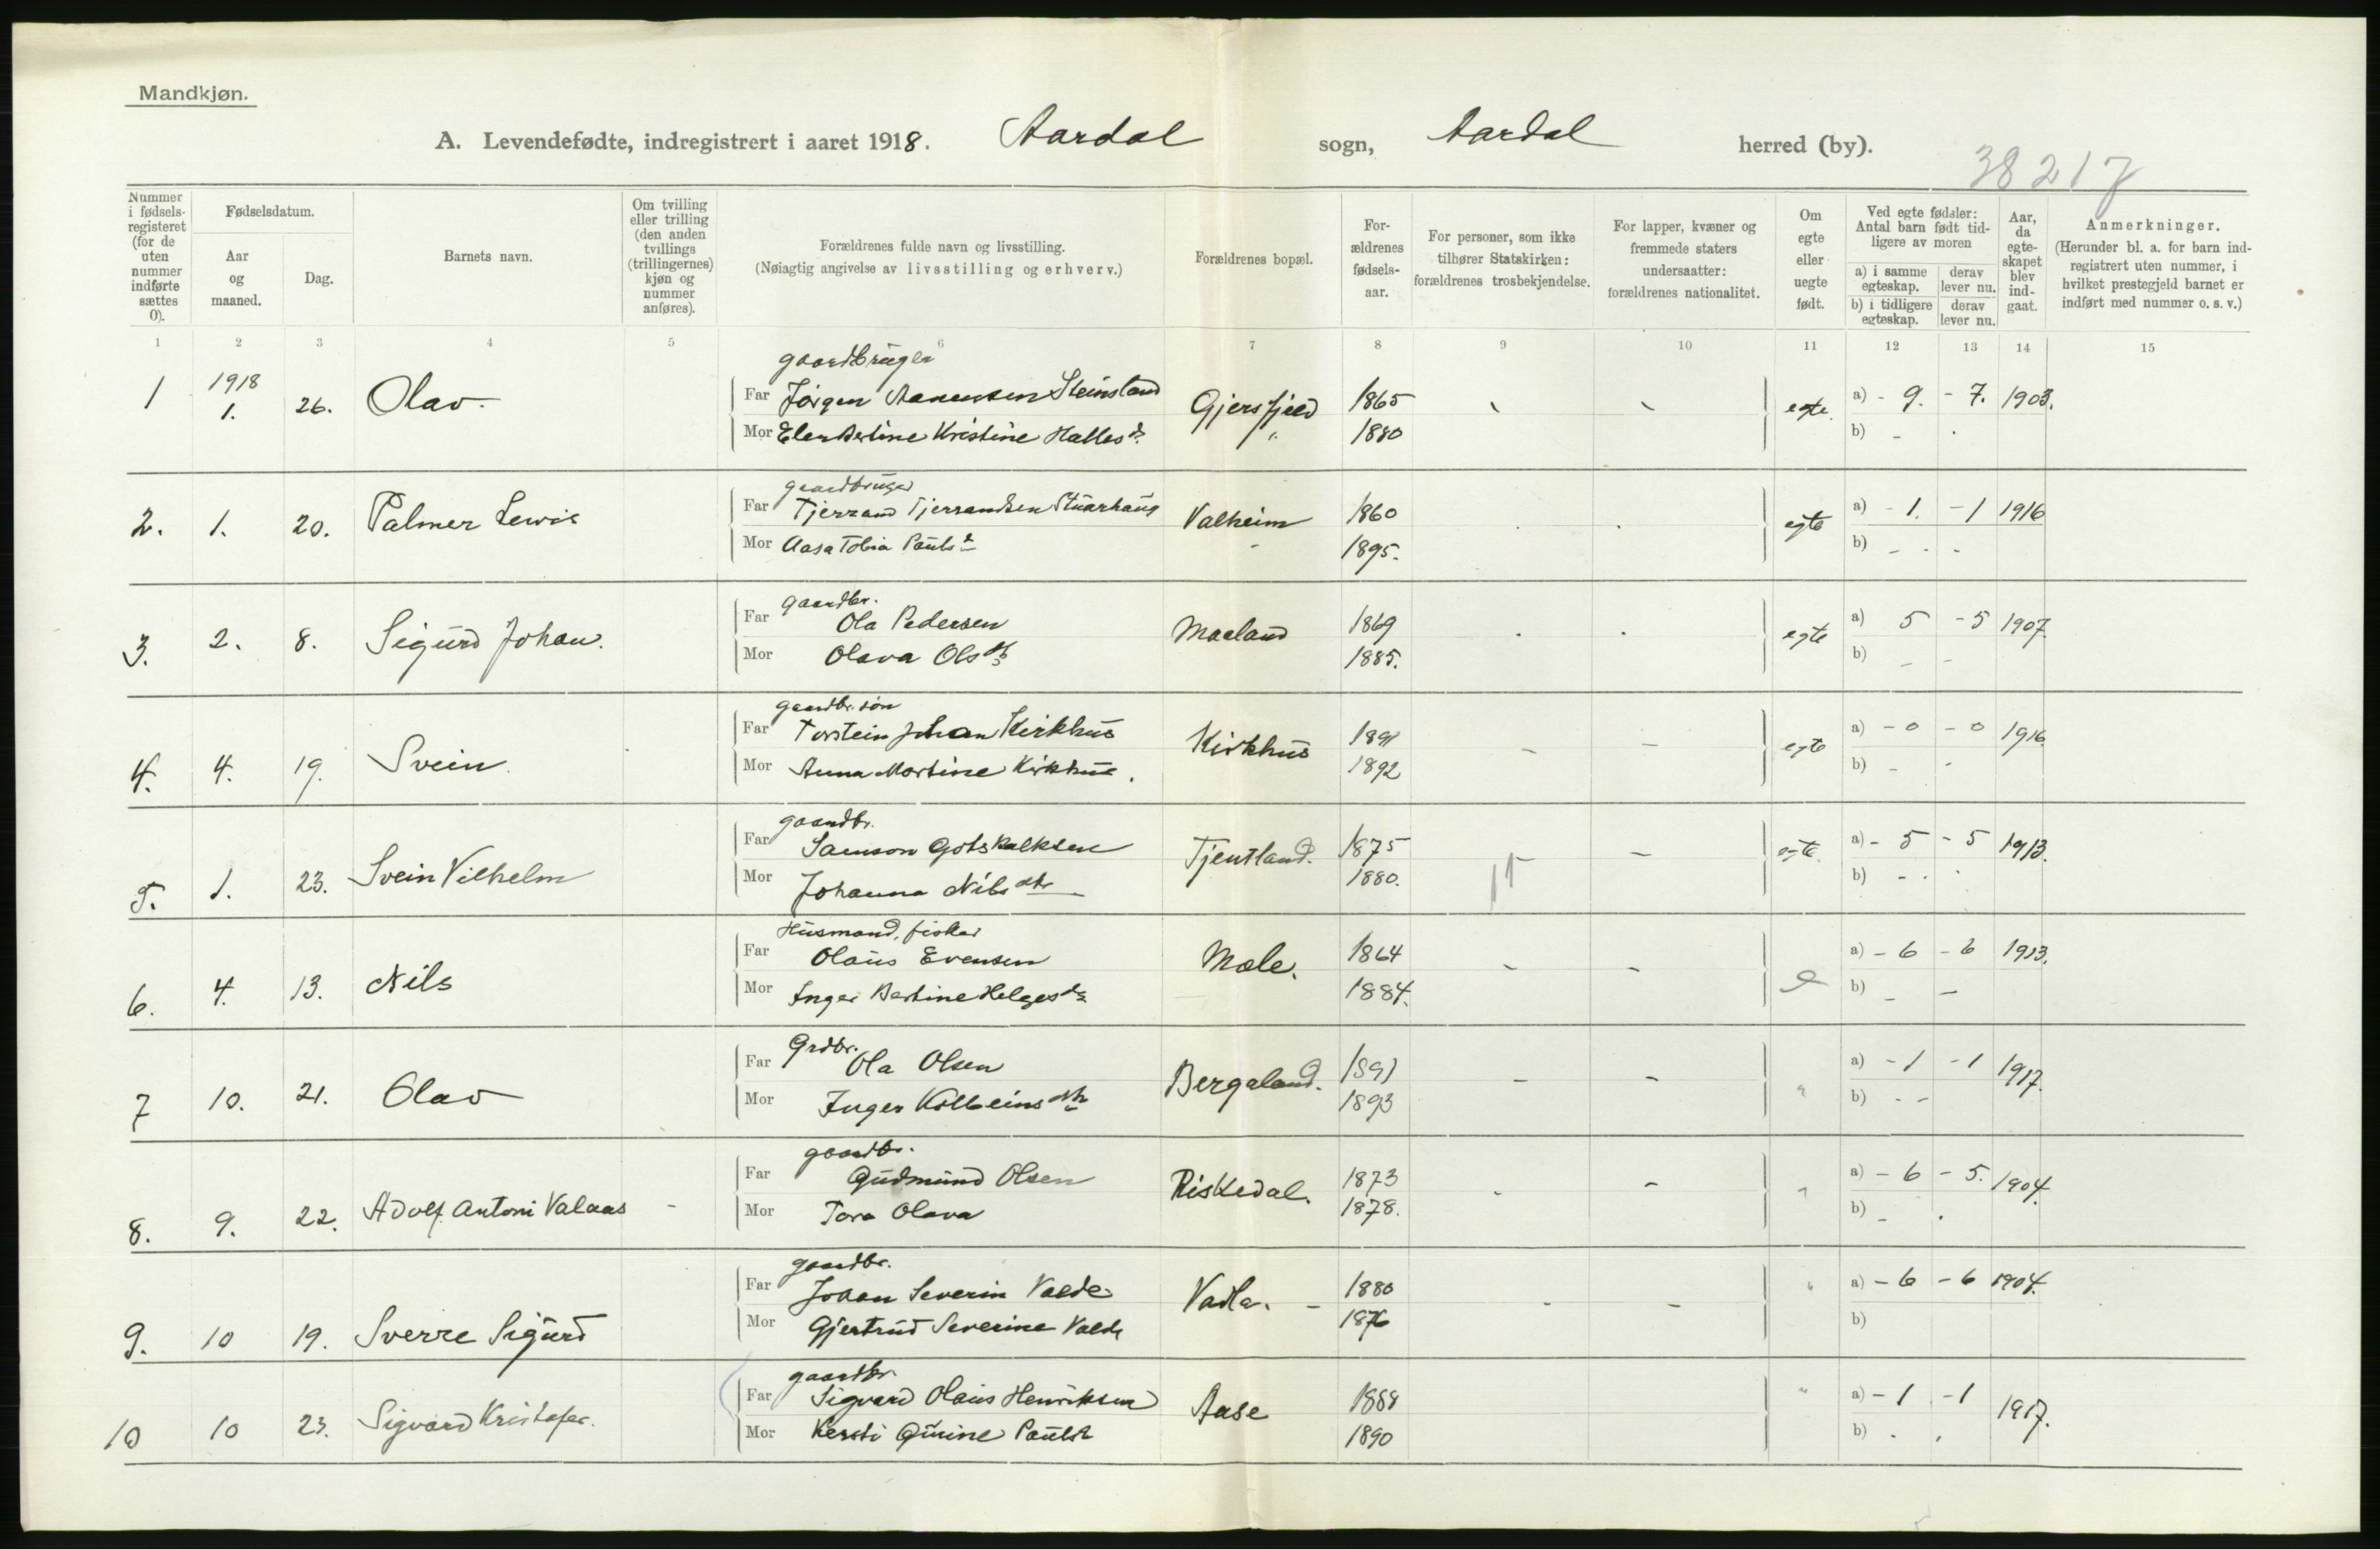 Mandkjøn.
A. Levendefødte, indregistrert i aaret 1918. Aardal sogn, Aardal herred (by).
38217
Nummer i fødsels-registeret (for de uten nummer indførte sættes 0).
Fødselsdatum.
Aar og maaned.
Dag.
Barnets navn.
Om tvilling eller trilling (den anden tvillings (trillingernes) kjøn og nummer anføres).
Forældrenes fulde navn og livsstilling.
(Nøiagtig angivelse av livsstilling og erhverv.)
Forældrenes bopæl.
For-ældrenes fødsels-aar.
For personer, som ikke tilhører Statskirken: forældrenes trosbekjendelse.
For lapper, kvæner og fremmede staters undersaatter: forældrenes nationalitet.
Om egte eller uegte født.
Ved egte fødsler: Antal barn født tid-ligere av moren
a) i samme egteskap.
derav lever nu.
b) i tidligere egteskap.
derav lever nu.
Aar, da egte-skapet blev ind-gaat.
Anmerkninger.
(Herunder bl. a. for barn ind-registrert uten nummer, i hvilket prestegjeld barnet er indført med nummer o. s. v.)
1 2 3 4 5 6 7 8 9 10 11 12 13 14 15
gaardbruger
1 1918 1. 26. Olav. Far Jørgen Aanensen Steinsland Gjersfjeld 1865 egte a) - 9. - 7. 1903.
Mor Elen Bertine Kristine Halles d. " 1880 b) -
gaardbruger
2. 1. 20. Palmer Lewis Far Tjerrand Tjerrandsen Valheim 1860 egte a) - 1. - 1 1916
Mor Aasa Tobia Pauls - 1895. b) - - -
gaardbr.
3. 2. 8. Sigurd Johan. Far Ola Pedersen Maeland 1869 egte a) 5 - 5 1907.
Mor Olava Ols 1885. b) - -
gaardbr. søn
4. 4. 19. Svein. Far Torstein Johan Kirkhus Kirkhus 1891 - - egte a) - 0 - 0 1916.
Mor Anna Martine Kirkhus. 1892 b) - -
gaardbr.
5. 1. 23. Svein Vilhelm Far Samson Gotskalksen Tjentland. 1875 - egte. a) - 5 - 5 1913.
Mor Johanna Nils dtr 1880. b) - -
Husmand, fisker
6. 4. 13. Nils Far Olaus Evensen Mæle. 1864 - - e a) - 6 - 6 1913.
Mor Inger Bertine Helges 1884. b) - -
Grdbr.
7 10. 21. Olav Far Ola Olsen Bergeland. 1891 - - " a) - 1 - 1 1917.
Mor Inger Kolbeins dtr 1893 b) - -
gaardbr.
8. 9. 22. Adolf Antoni Valaas - Far Gudmund Olsen Riskedal. 1873 - - " a) - 6 - 5. 1904.
Mor Tora Olava 1878. b) -
gaardbr.
9. 10 19. Sverre Sigurd Far Johan Severin Valde Vadla. - 1880 - - " a) - 6 - 6 1904.
Mor Gjertrud Severine Valde 1876 b)
gaardbr.
10 10 23. Sigvard Kristofer. Far Sigvard Olaus Henriksen Aase 1888 " a) - 1 - 1 1917.
Mor Kersti Gurine 1890 b)